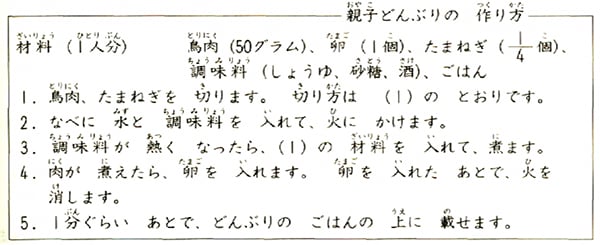 親子どんぶりの 作り方
材料 (1人分) 鳥肉 (50グラム)、卵 (1個)、たまねぎ (1/4個)、
調味料 (しょうゆ、砂糖、酒)、ごはん
1. 鳥肉、たまねぎを 切ります。 切り方は (1) の とおりです。
2. なべに 水と 調味料を 入れて、火に かけます。
3. 調味料が 熱く なったら、(1) の 材料を 入れて、煮ます。
4. 肉が 煮えたら、卵を 入れます。 卵を 入れた あとで、火を
消します。
5. 1分ぐらい あとで、どんぶりの ごはんの 上に 載せます。